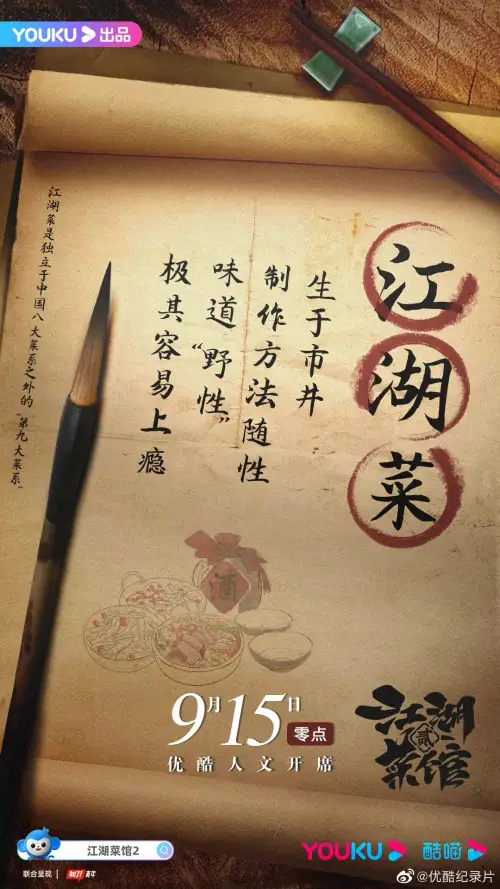 YOUKU 出品
江湖菜
生于市井
制作方法随性
味道“野性”
极其容易上瘾
江湖菜是独立于中国八大菜系之外的“第九大菜系”
酒
9月15日
零点
优酷人文开席
江湖
贰
菜馆
江湖菜馆2
联合呈现
YOUKU 酷喵
@优酷纪录片